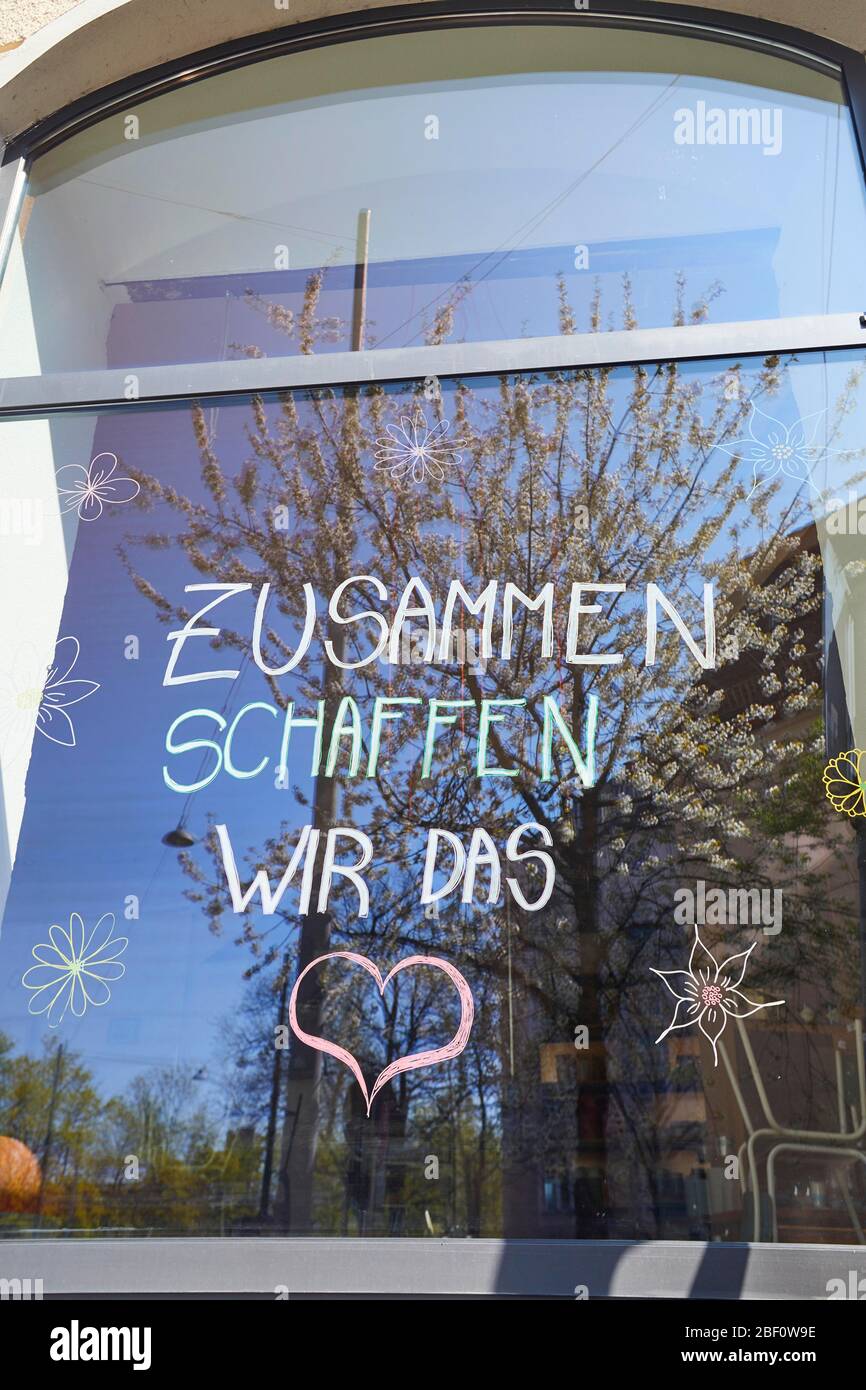 alamy
ZUSAMMEN
SCHAFFEN
WIR DAS
alamy
alamy
Image ID: 2BF0W9E
www.alamy.com